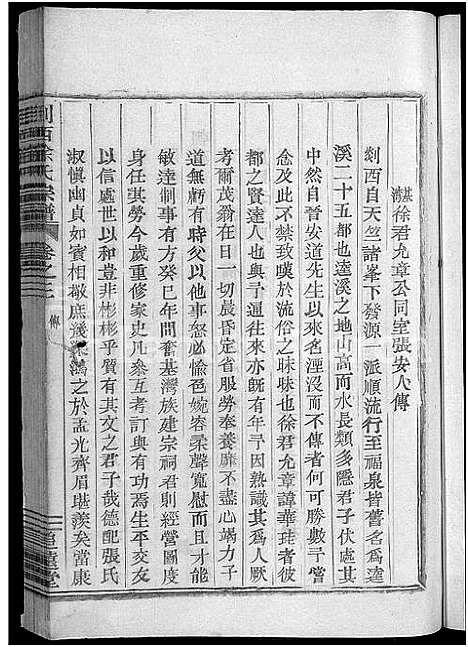 基灣徐君允章公同室張安人傳
剡西自天竺諸峯下發源一派順流行至福泉皆舊名為逵
溪二十五都也逵溪之地山高而水長類多隱君子伏處其
中然自晉安道先生以來名湮沒而不傳者何可勝數予嘗
念及此不禁致嘆於流俗之昧昧也徐君允章諱華珪者彼
都之賢達人也與予過往來亦既有年予因熟識其為人厥
考爾茂翁在日一切晨昏定省服勞奉養靡不盡心竭力子
道無虧有時父以他事怒必愉色婉容柔聲寬慰而且才能
敏達制事有方癸巳年間奮基灣族建宗祠君則經營圖度
身任其勞今歲重修家史凡叅互考訂與有功焉生平交友
以信處世以和豈非彬彬乎質有其文之君子哉德配張氏
淑慎幽貞如賓相敬庶幾梁鴻之於孟光齊眉堪羨矣當康
剡西徐氏宗譜
卷之三
傳